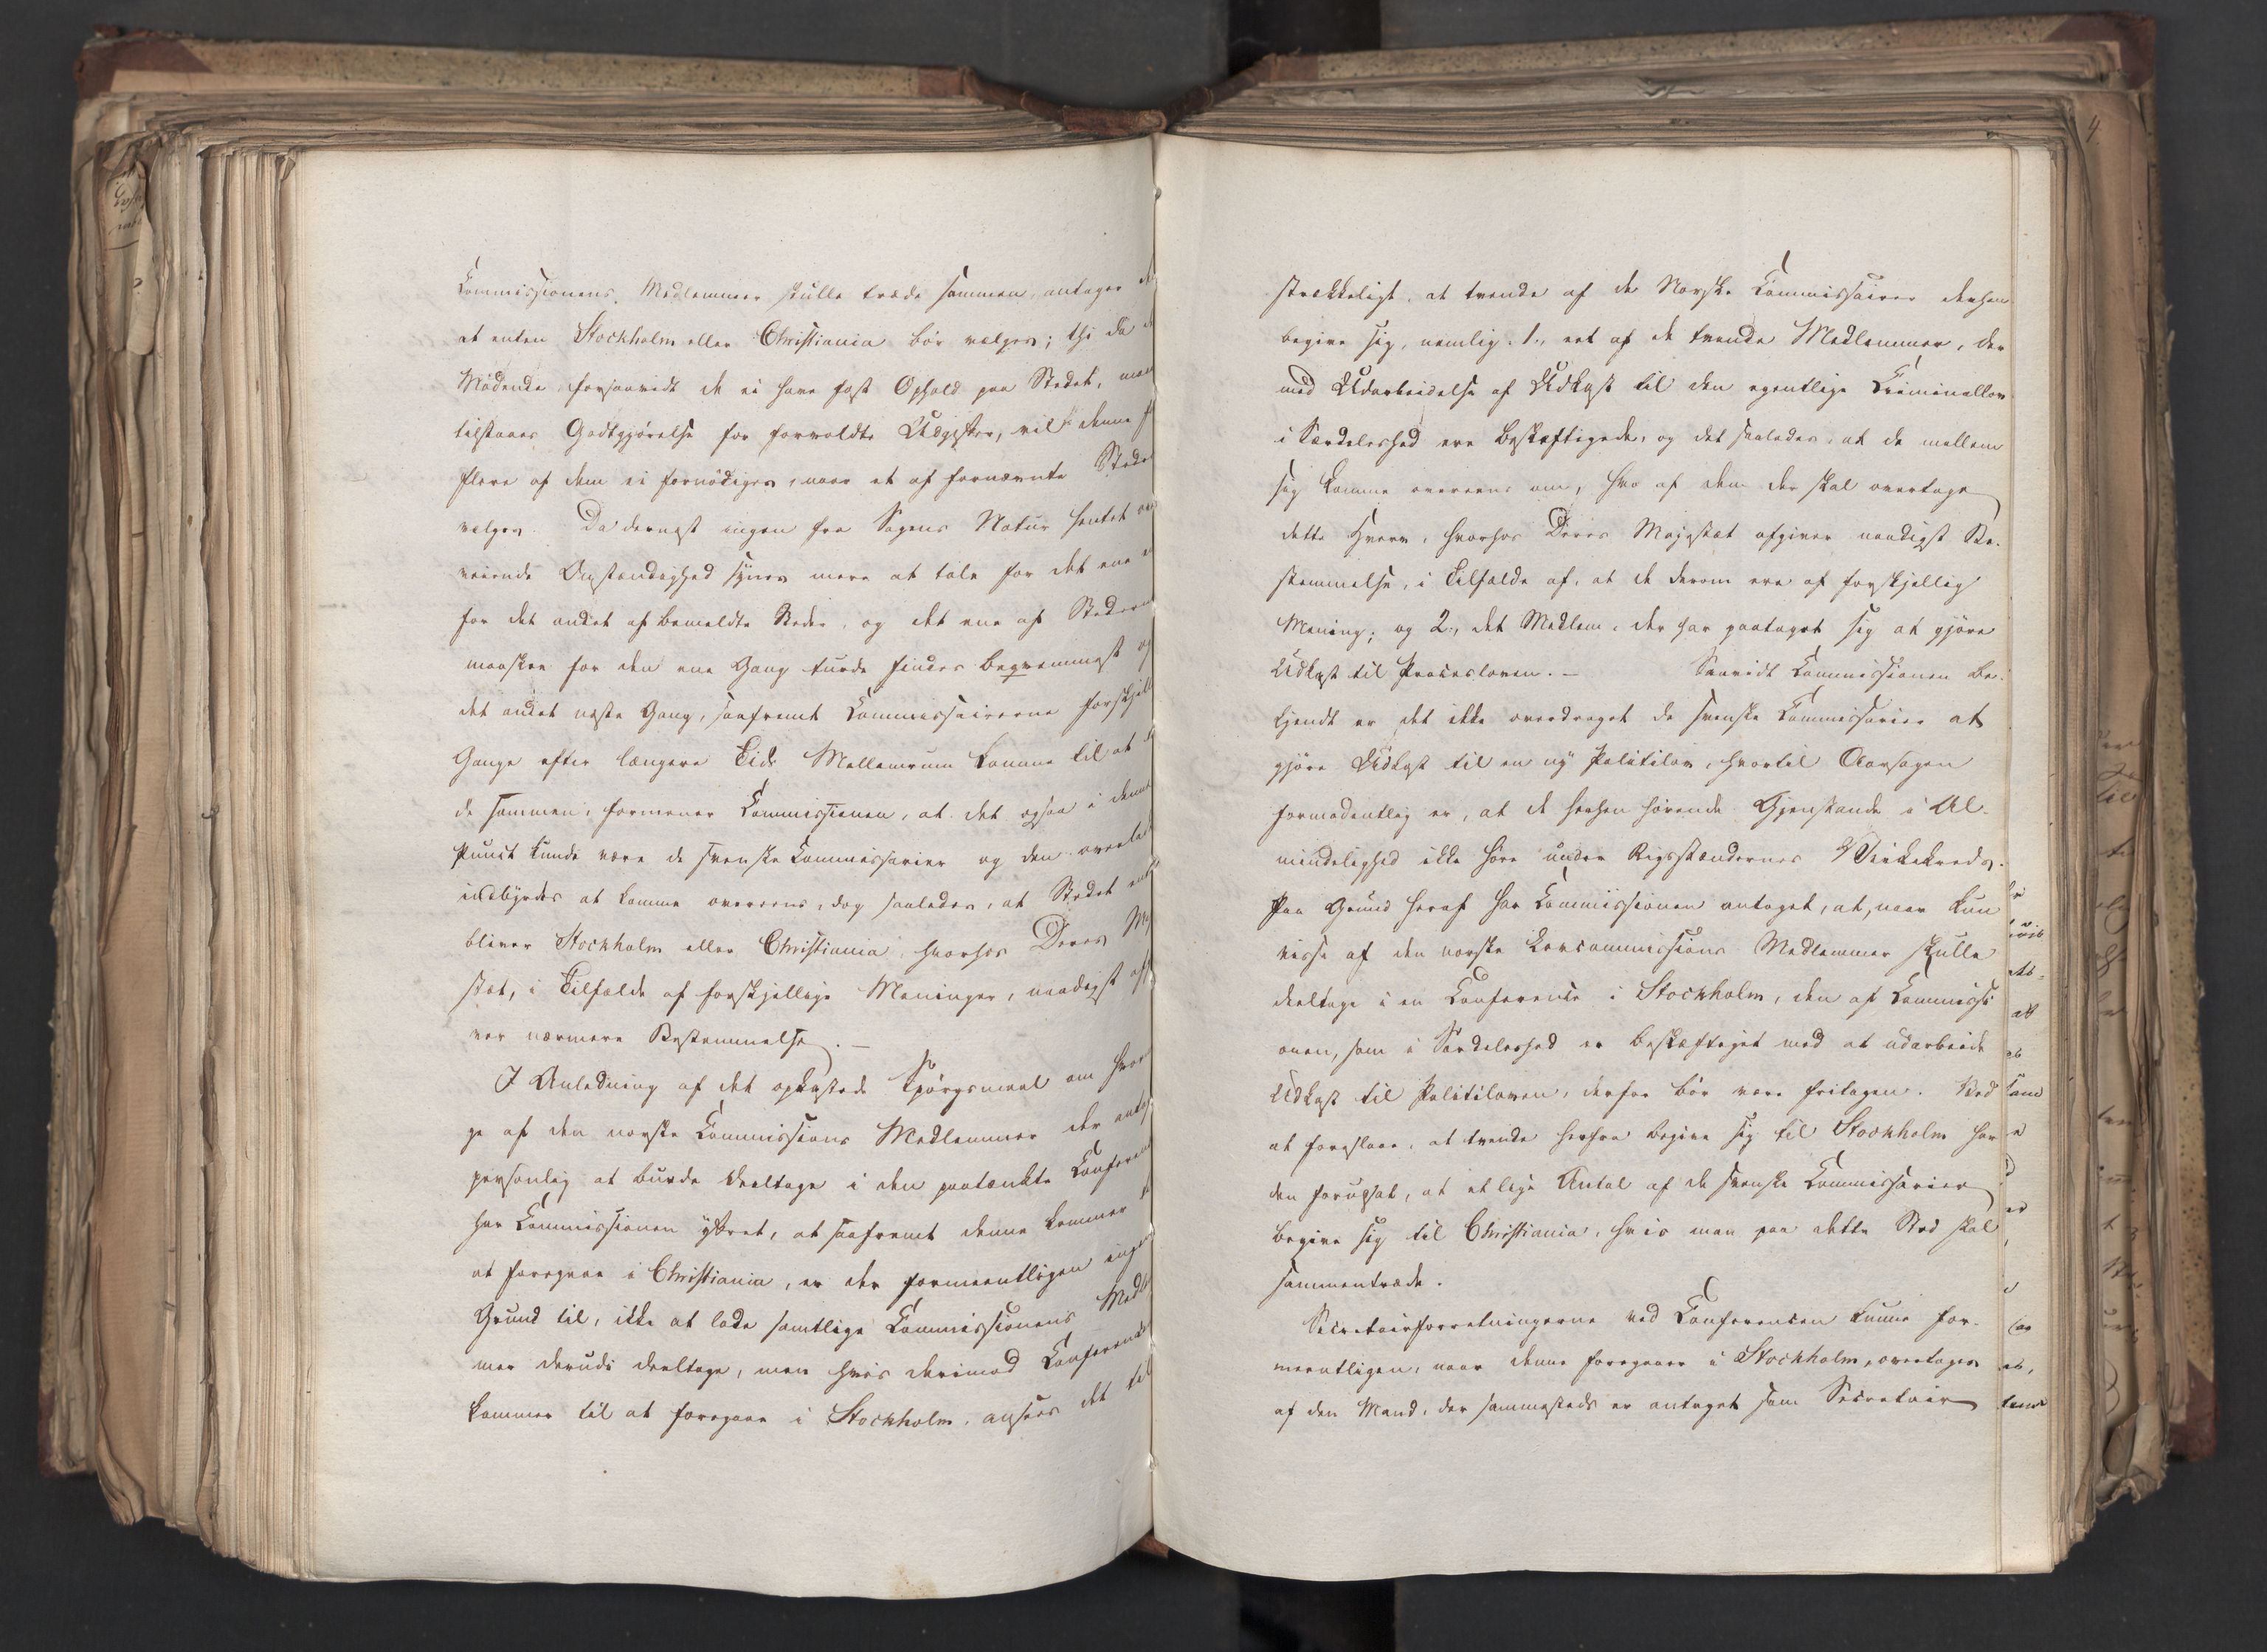 Commissionens Medlemmer skulle træde sammen, antager
at enten Stockholm eller Christiania bör vælges; thi da
Mödende forsaavidt de ei have fast Ophold paa Stedet, maa
tilstaaes Godtgjörelse for forvoldte Udgifter, vil denne
flere af dem ei fornödiges, naar et af fornævnte Stede
vælges. Da dernæst ingen fra Sagens Natur hentet
veiende Omstændighed synes mere at tale for det ene
for det andet af bemeldte Steder, og det ene af Stedern
maaskee for den ene Gang turde findes beqvemmest og
det andet næste Gang, saafremt Commissairerne forskjell
Gange efter længere Tids Mellemrum komme til at
de sammen, formener Commissionen, at det ogsaa i denne
Punct kunde være de svenske Commissarier og den overlad
indbyrdes at komme overeens, dog saaledes, at Stedet ent
bliver Stockholm eller Christiania, hvorhos Deres Maj
stæt, i Tilfælde af forskjellige Meninger, naadigst af
ver nærmere Bestemmelse. —
I Anledning af det opkastede Spörgsmaal om hvor
ge af den norske Commissions Medlemmer der antag
personlig at burde deeltage i den paatænkte Conferen
har Commissionen yttret, at saafremt denne kommer
at foregaae i Christiania, er der formeentligen ingen
Grund til, ikke at lade samtlige Commissionens Medle
mer derudi deeltage, men hvis derimod Conferen
kommer til at foregaae i Stockholm, ansees det til
strækkeligt, at tvende af de Norske Commissairer derhen
begive sig, nemlig 1., eet af de tvende Medlemmer, der
med Udarbeidelse af Udkast til den egentlige Criminallov
i Særdeleshed ere beskjæftigede, og det saaledes, at de mellem
sig komme overeens om, hvo af dem der skal overtage
dette Hverv, hvorhos Deres Majestæt afgiver naadigst Be-
stemmelse, i Tilfælde af, at de derom ere af forskjellig
Mening; og 2., det Medlem, der har paataget sig at gjöre
Udkast til Processloven. — Saavidt Commissionen be-
kjendt er det ikke overdraget de svenske Commissarier at
gjöre Udkast til en ny Politilov, hvortil Aarsagen
formodentlig er, at de herhen hörende Gjenstande i Al-
mindelighed ikke höre under Rigsstændernes Virkekreds.
Paa Grund heraf har Commissionen antaget, at, naar kun
visse af den norske Lovcommissions Medlemmer skulle
deeltage i en Conference i Stockholm, den af Commissi
onen, som i Særdeleshed er beskjæftiget med at udarbeide
Udkast til Politiloven, derfor bör være fritagen. Ved
at foreslaae, at tvende herfra begive sig til Stockholm har
den forudsat, at et lige Antal af de svenske Commissarier
begive sig til Christiania, hvis man paa dette Sted skal
sammentræde.
Secretairforretningerne ved Conferencen kunne for-
meentligen, naar denne foregaaer i Stockholm, overtages
af den Mand, der sammesteds er antaget som Secretair